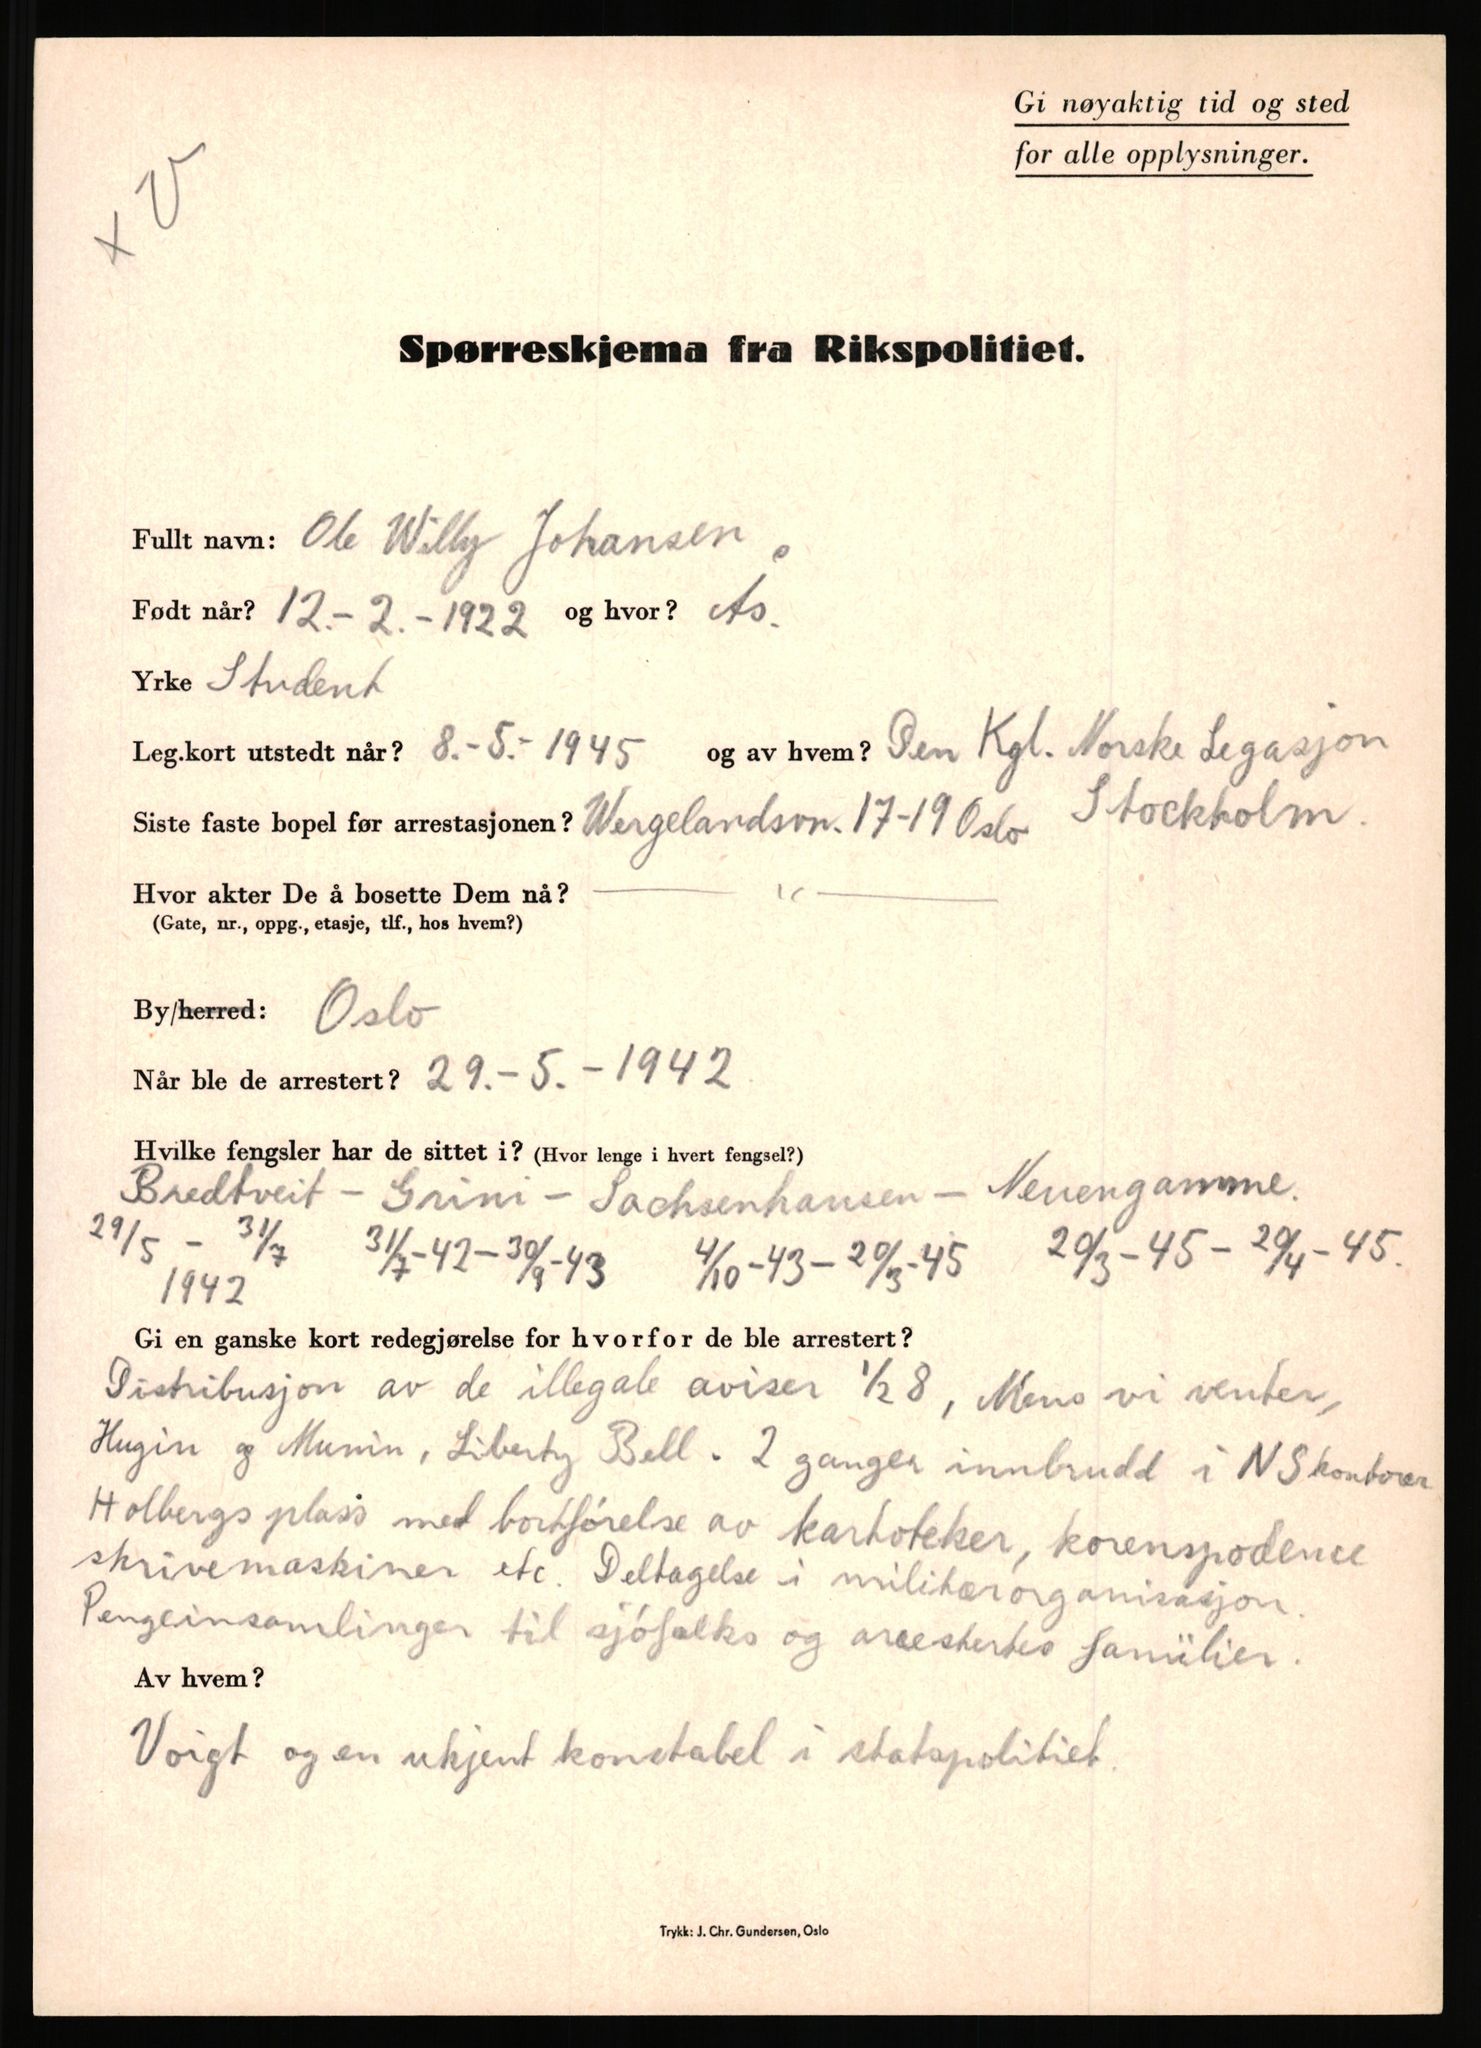 Gi nøyaktig tid og sted
for alle opplysninger.
+ V
Spørreskjema fra Rikspolitiet.
Fullt navn: Ole Willy Johansen
Født når? 12.-2.-1922 og hvor? Ås.
Yrke Student
Leg.kort utstedt når? 8.-5.-1945 og av hvem? Den Kgl. Norske Legasjon
Stockholm.
Siste faste bopel før arrestasjonen? Wergelandsvn. 17-19 Oslo
Hvor akter De å bosette Dem nå? — " —
(Gate, nr., oppg., etasje, tlf., hos hvem?)
By/herred: Oslo
Når ble de arrestert? 29.-5.-1942
Hvilke fengsler har de sittet i? (Hvor lenge i hvert fengsel?)
Bredtveit - Grini - Sachsenhausen - Neuengamme.
29/5 - 31/7 31/7-42-30/9-43 4/10-43-20/3-45 20/3-45-20/4-45.
1942
Gi en ganske kort redegjørelse for hvorfor de ble arrestert?
Distribusjon av de illegale aviser 1/2 8, Mens vi venter,
Hugin og Munin, Liberty Bell. 2 ganger innbrudd i NS kontorer
Holbergs plass med bortførelse av kartoteker, korenspodence
skrivemaskiner etc. Deltagelse i militærorganisasjon.
Pengeinsamlinger til sjøfolks og arrestertes familier.
Av hvem?
Voigt og en ukjent konstabel i statspolitiet.
Trykk: J. Chr. Gundersen, Oslo